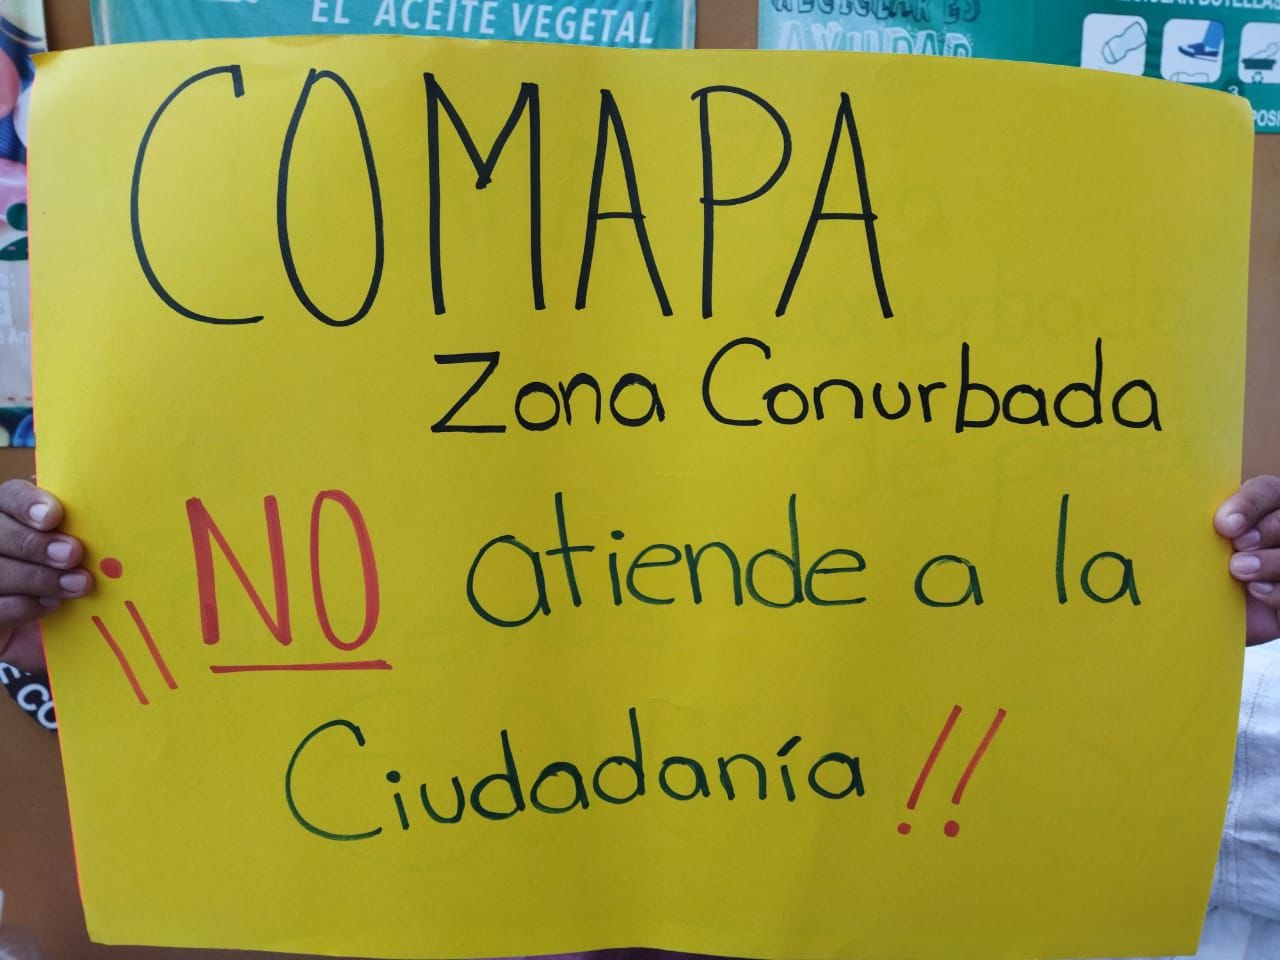 EL ACEITE VEGETAL
RECICLAR ES
AYUDAR
RECICLAR BOTELLAS
3
COMAPA
Zona Conurbada
¡¡NO atiende a la
Ciudadanía!!
CO